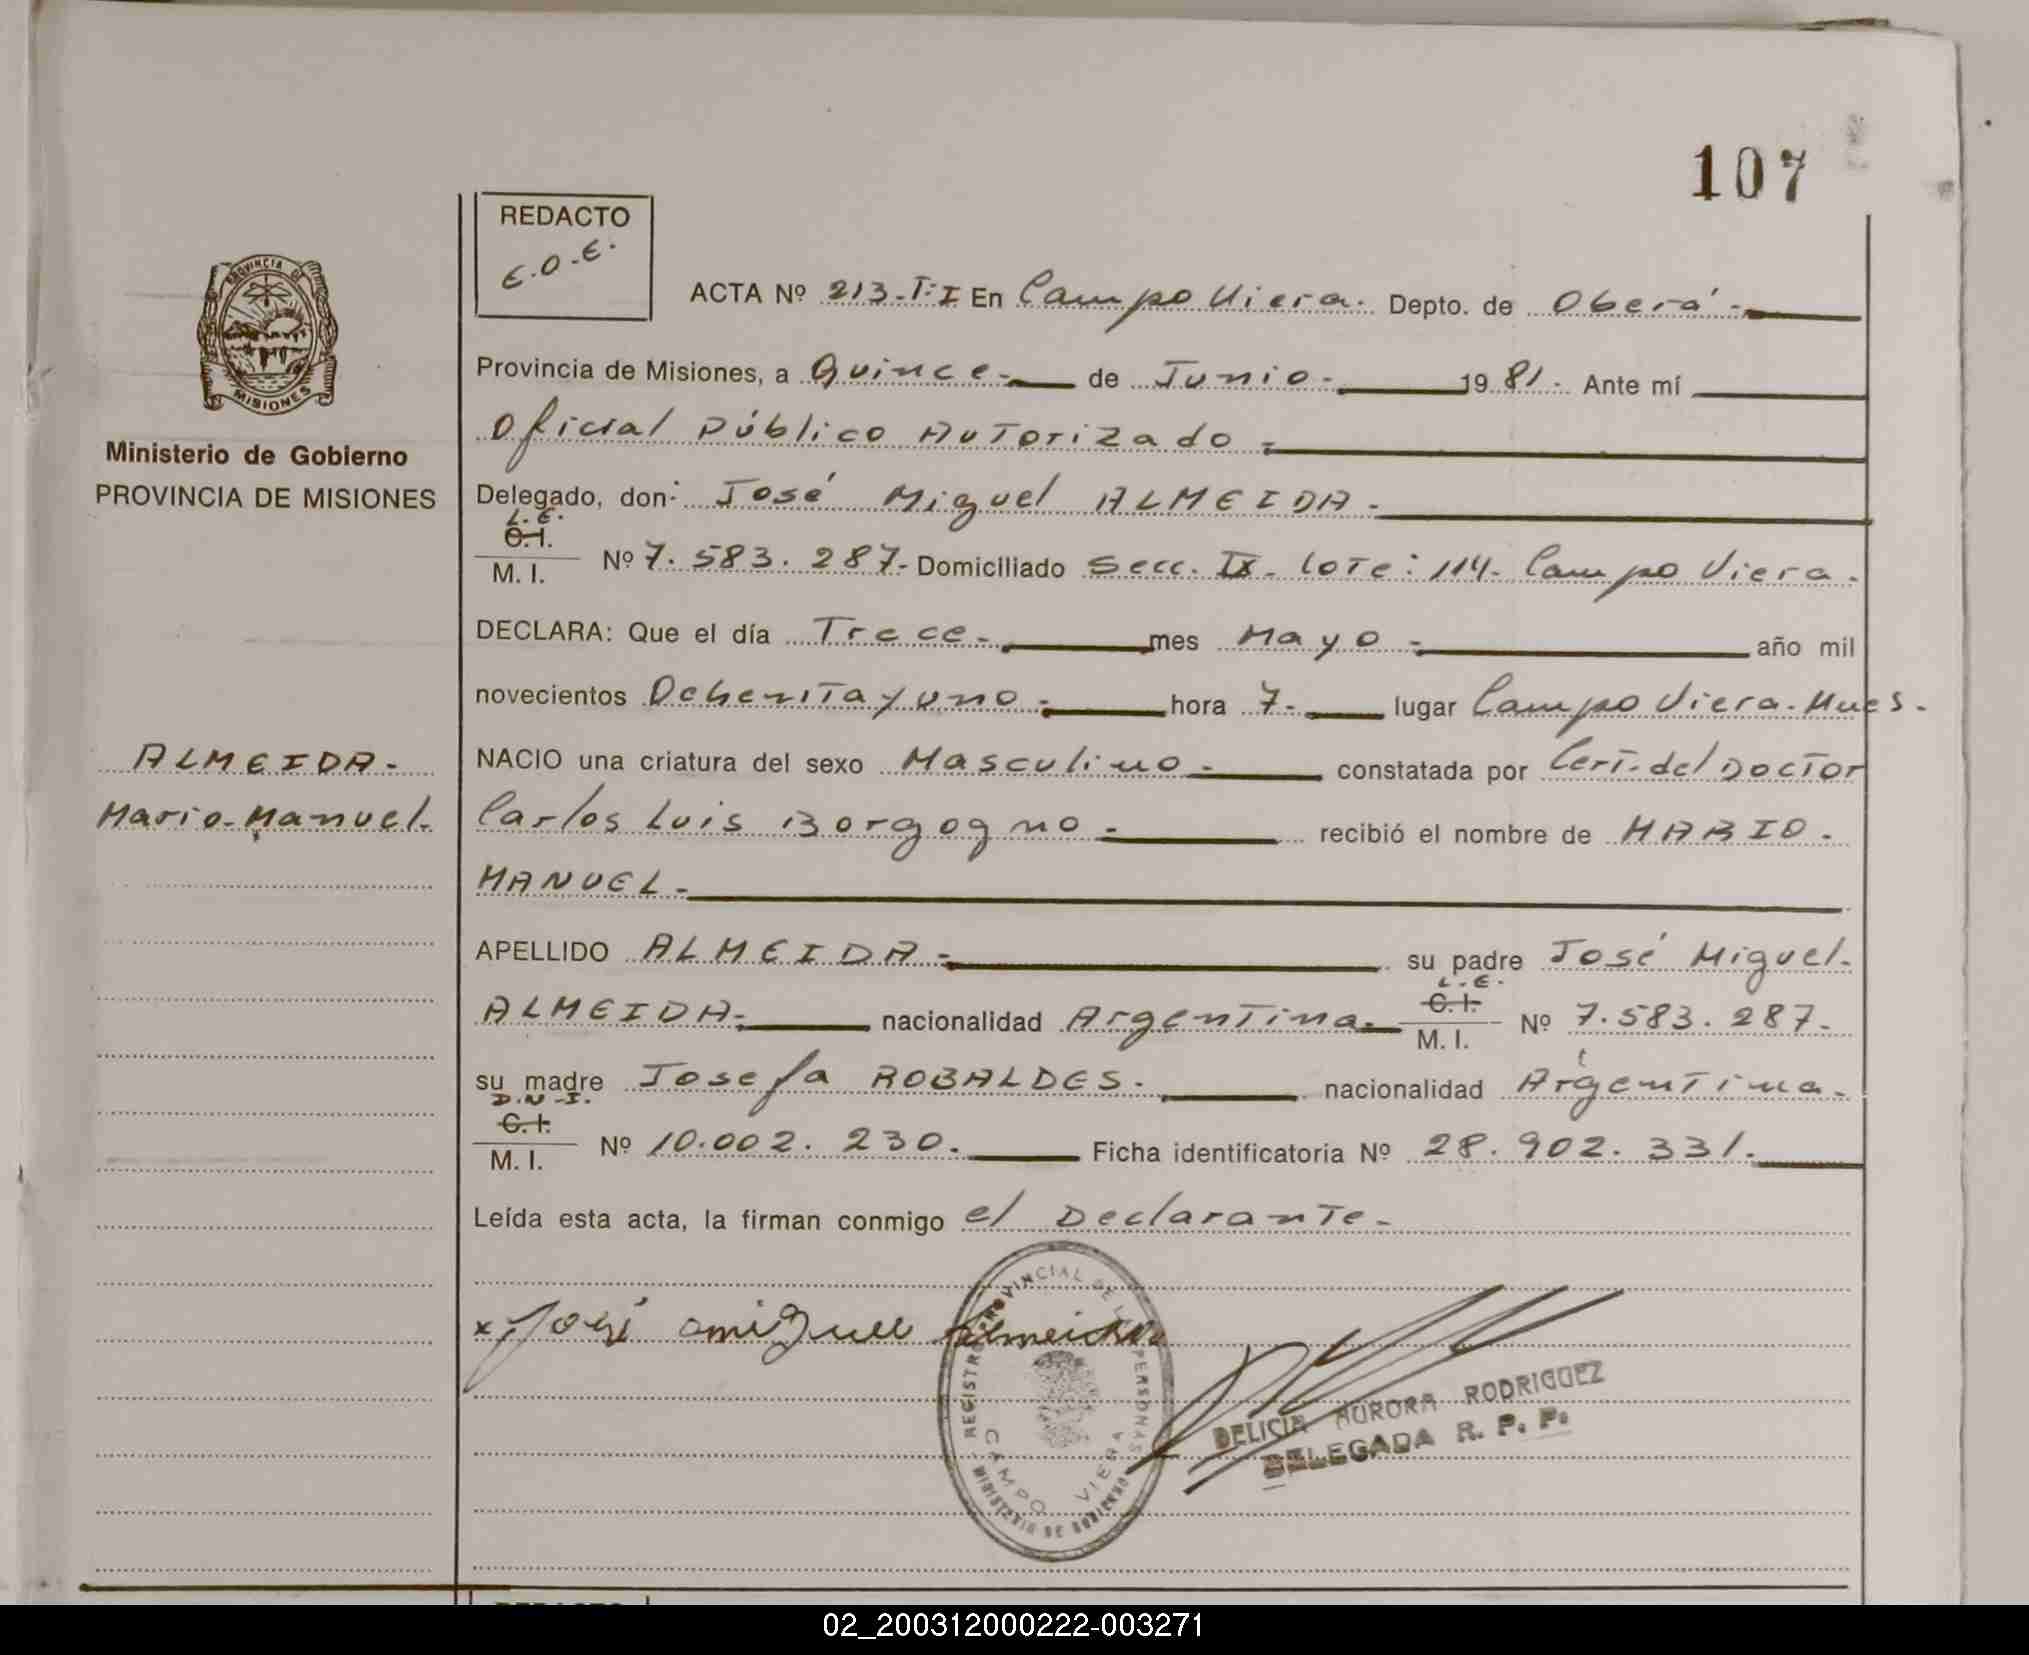 107
REDACTO
E.O.E.
ACTA Nº 213-T:I En Campo Viera. Depto. de Oberá.-
Provincia de Misiones, a Quince.- de Junio.- 1981.- Ante mí
Oficial Público Autorizado.-
PROVINCIA DE
MISIONES
Ministerio de Gobierno
PROVINCIA DE MISIONES
Delegado, don: José Miguel ALMEIDA.-
L.E.
C.I.
M.I.
Nº 7.583.287.- Domiciliado Secc. IX. Lote: 114. Campo Viera.
DECLARA: Que el día Trece.- mes Mayo.- año mil
novecientos Ochenta y uno.- hora 7.- lugar Campo Viera. Mnes.
NACIO una criatura del sexo Masculino.- constatada por Cert. del Doctor
Carlos Luis Borgogno.- recibió el nombre de MARIO.
MANUEL.-
ALMEIDA.-
Mario-Manuel.
APELLIDO ALMEIDA.- su padre José Miguel.
ALMEIDA.- nacionalidad Argentina.-
L.E.
C.I.
M.I.
Nº 7.583.287.-
su madre Josefa ROBALDES.- nacionalidad Argentina.-
D.N.I.
C.I.
M.I.
Nº 10.002.230.- Ficha identificatoria Nº 28.902.331.-
Leída esta acta, la firman conmigo el Declarante.-
x José Miguel Almeida
REGISTRO PROVINCIAL DE LAS PERSONAS
MINISTERIO DE GOBIERNO
CAMPO VIERA
DELICIA AURORA RODRIGUEZ
DELEGADA R. P. P.
REDACTO
02_200312000222-003271